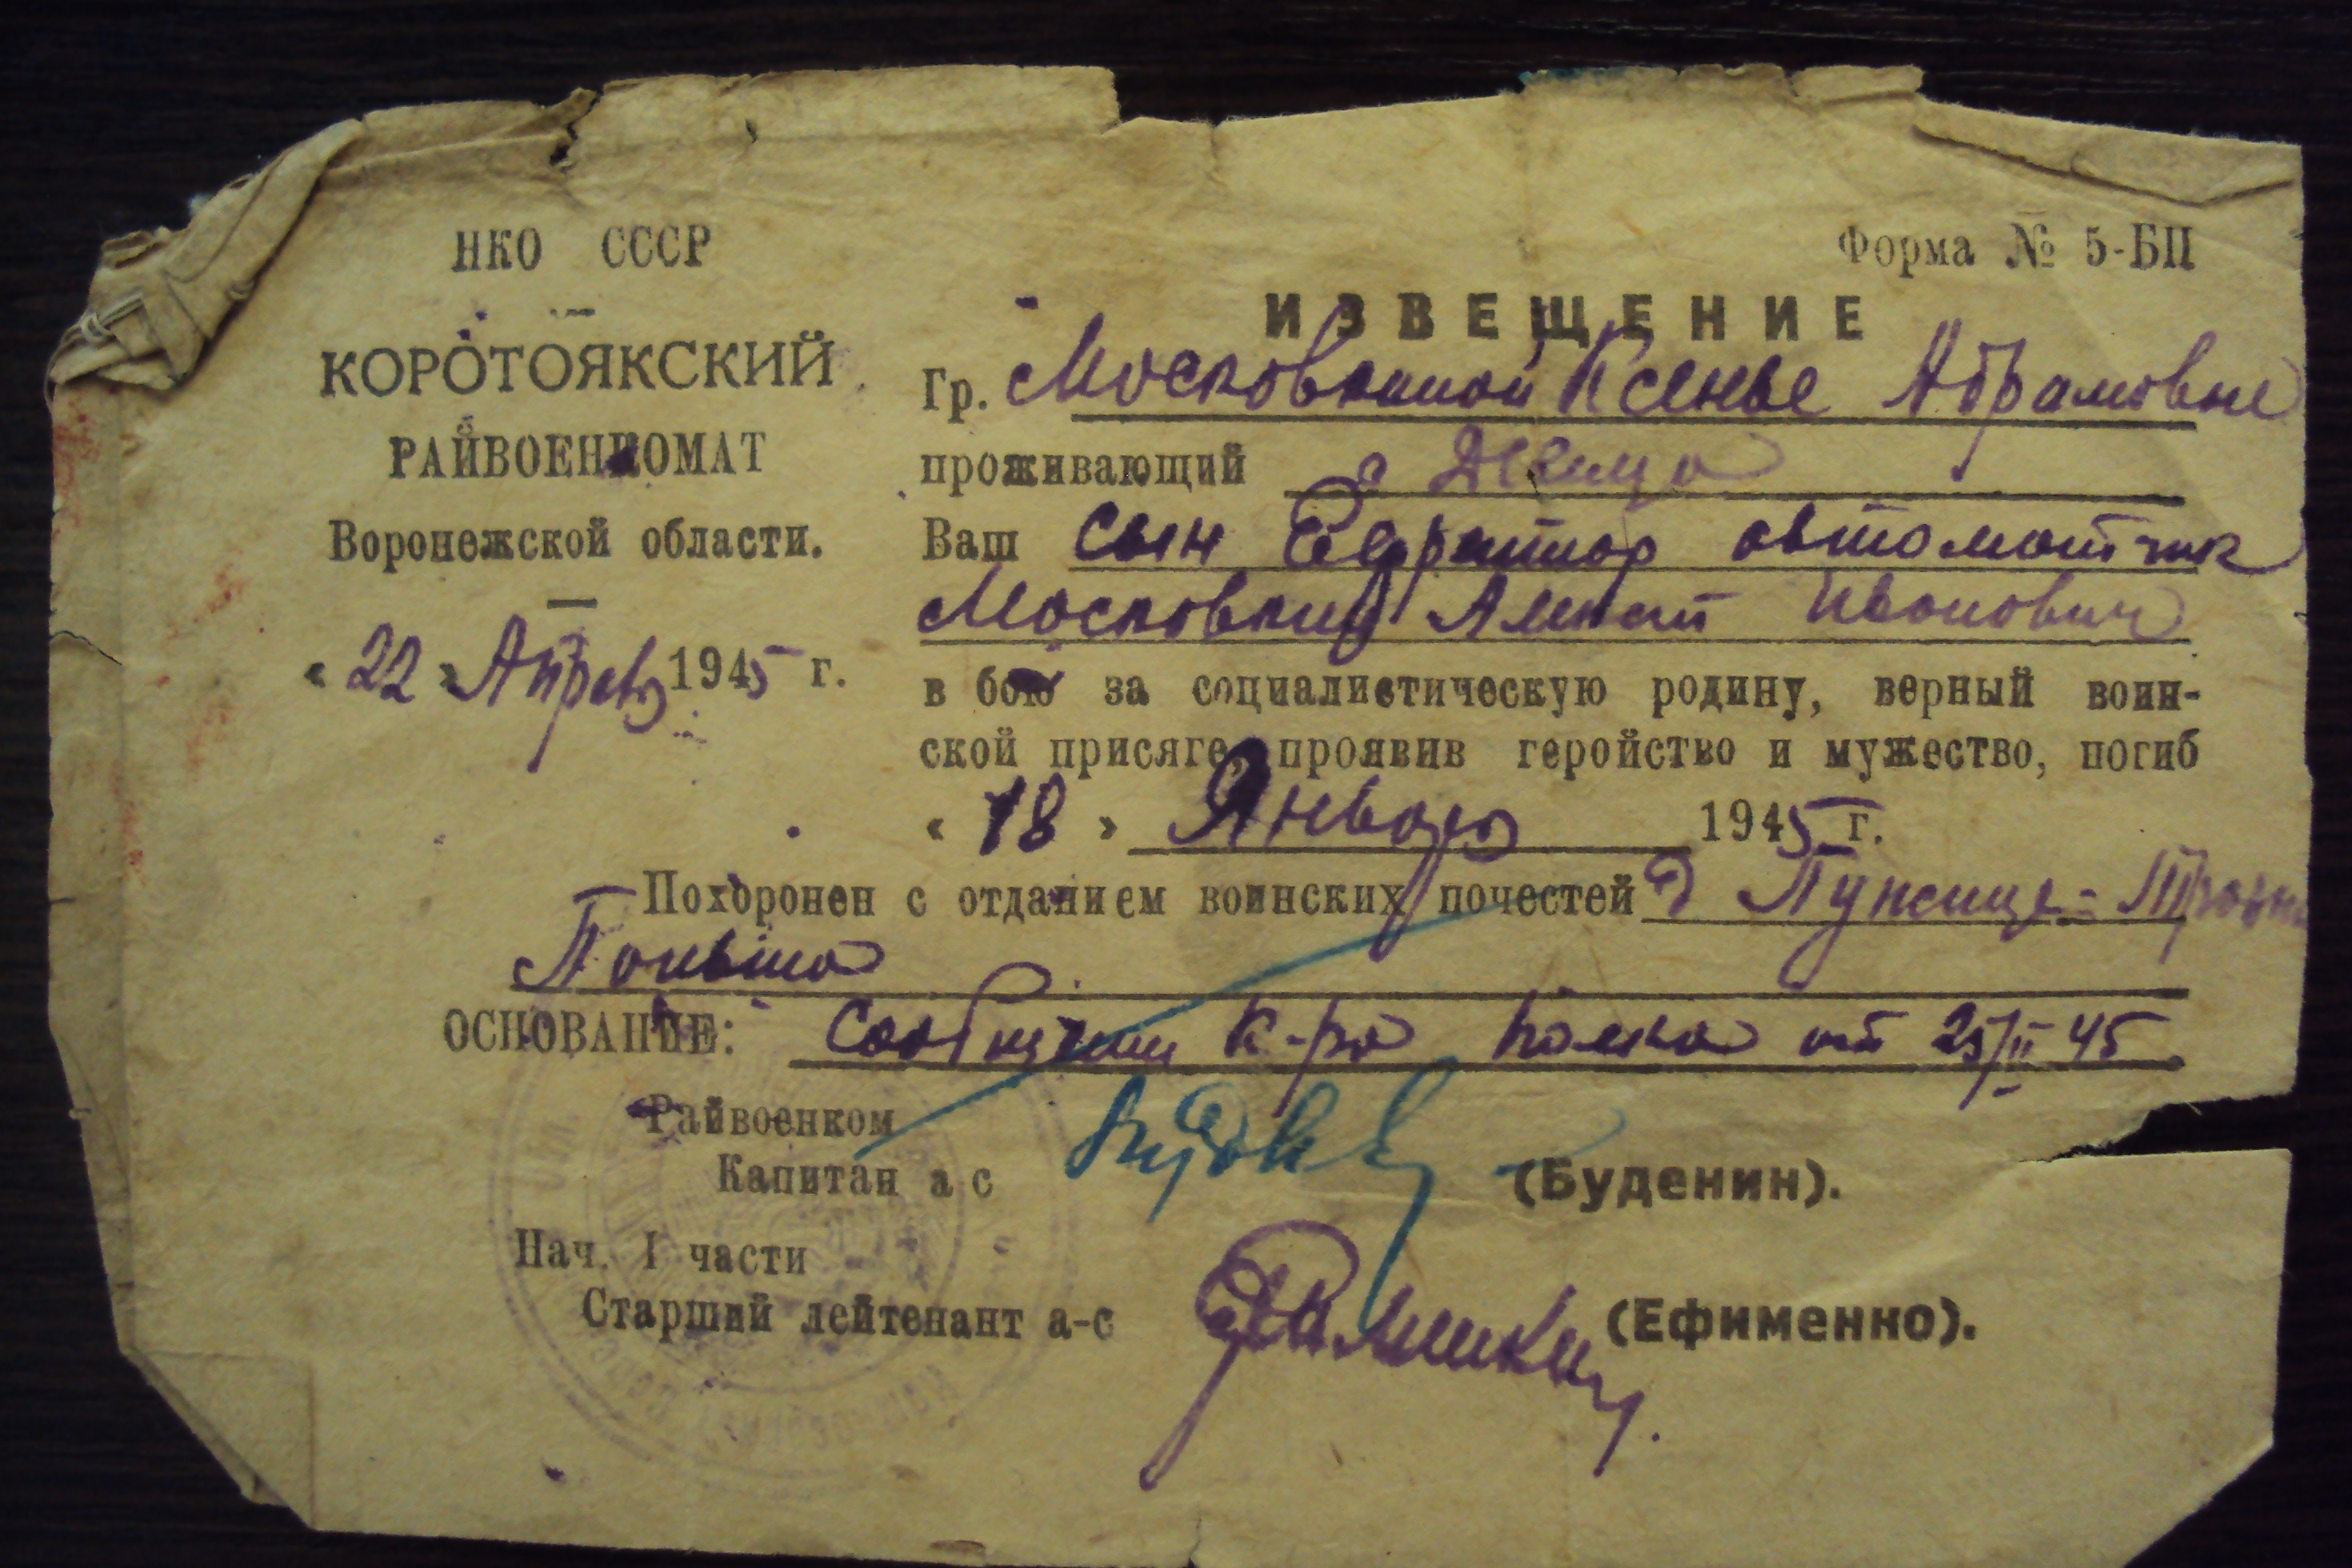 НКО СССР
Форма № 5-БП
ИЗВЕЩЕНИЕ
КОРОТОЯКСКИЙ
РАЙВОЕНКОМАТ
Воронежской области.
« 22 » 1945 г.
Гр. Московкиной Ксенье Абрамовне
проживающий с
Ваш сын Ефрейтор автоматчик
Московкин Иванович
в бою за социалистическую родину, верный воин-
ской присяге, проявив геройство и мужество, погиб
« 18 » Января 1945 г.
Похоронен с отданием воинских почестей д
Польша
ОСНОВАНИЕ: к-ра полка от 25/II 45
Райвоенком
Капитан а с (Буденин).
Нач. I части
Старший лейтенант а-с (Ефименко).